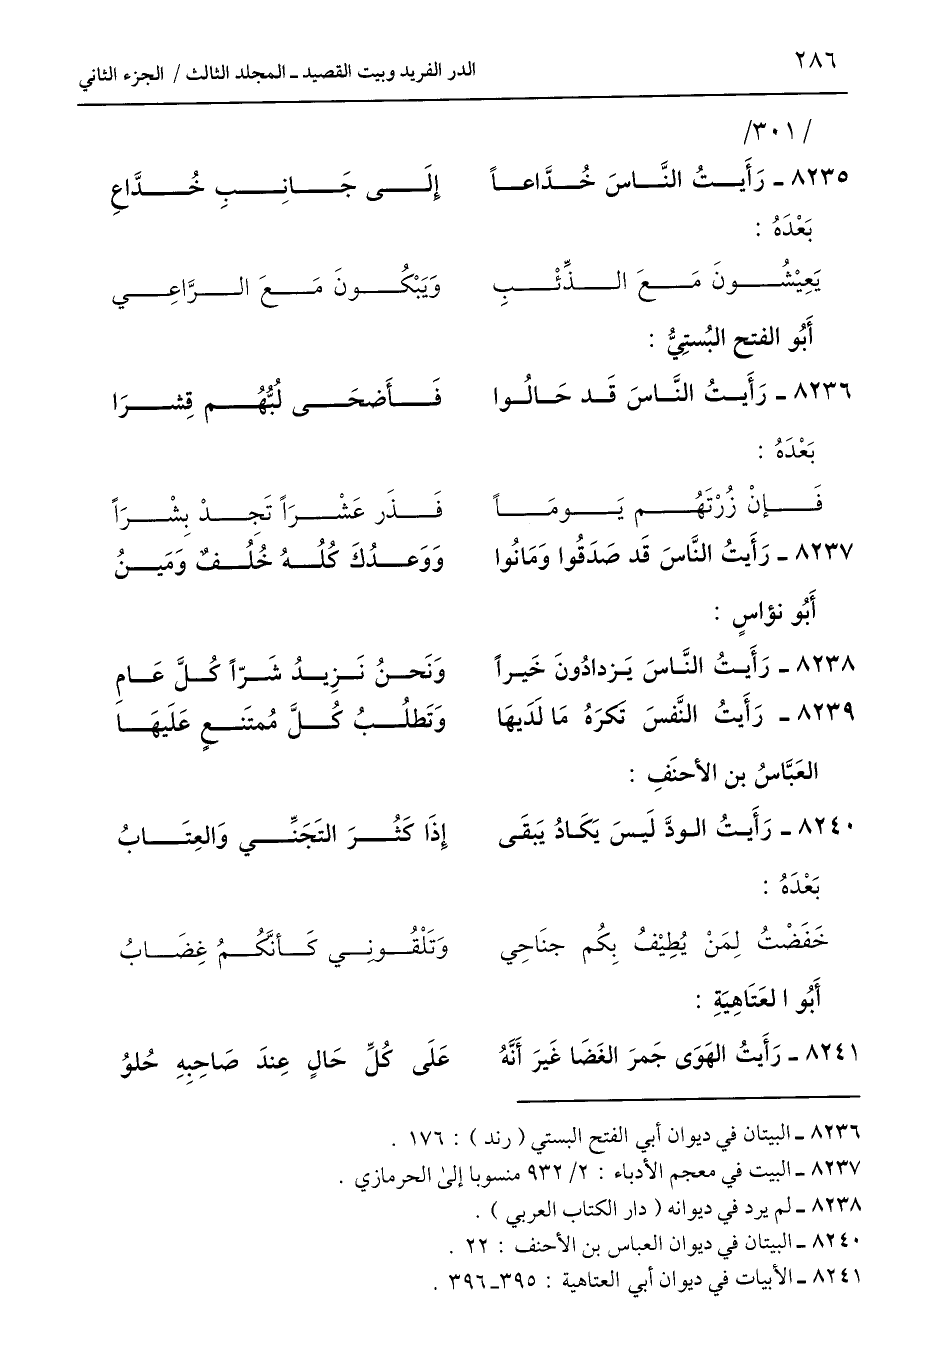 ٢٨٦
الدر الفريد وبيت القصيد ـ المجلد الثالث / الجزء الثاني
/٣٠١/
٨٢٣٥ ـ رَأَيتُ النَّاسَ خُدَّاعاً إِلَى جَانِبِ خُدَّاعِ
بَعْدَهُ :
يَعِيْشُونَ مَعَ الذِّئْبِ وَيَبْكُونَ مَعَ الرَّاعِي
أَبُو الفتح البُستِيُّ :
٨٢٣٦ ـ رَأَيتُ النَّاسَ قَد حَالُوا فَأَضحَى لُبُّهُم قِشرَا
بَعْدَهُ :
فَإِنْ زُرْتَهُم يَومَاً فَذَر عَشْرَاً تَجِدْ بِشْرَاً
٨٢٣٧ ـ رَأَيتُ النَّاسَ قَد صَدَقُوا وَمَانُوا وَوَعدُكَ كُلُهُ خُلُفٌ وَمَينُ
أَبُو نؤاسٍ :
٨٢٣٨ ـ رَأَيتُ النَّاسَ يَزدادُونَ خَيراً وَنَحنُ نَزِيدُ شَرّاً كُلَّ عَامِ
٨٢٣٩ ـ رَأَيتُ النَّفسَ تَكرَهُ مَا لَدَيهَا وَتَطلُبُ كُلَّ مُمتَنعٍ عَلَيهَا
العَبَّاسُ بن الأحنَفِ :
٨٢٤٠ ـ رَأَيتُ الودَّ لَيسَ يَكَادُ يَبقَى إِذَا كَثُرَ التَجَنِّي وَالعِتَابُ
بَعْدَهُ :
خَفَضْتُ لِمَنْ يُطِيْفُ بِكُم جناحِي وَتَلْقُونِي كَأنَّكُمُ غِضَابُ
أَبُو العَتَاهِيَةِ :
٨٢٤١ ـ رَأَيتُ الهَوَى جَمرَ الغَضَا غَيرَ أَنَّهُ عَلَى كُلِّ حَالٍ عِندَ صَاحِبِهِ حُلوُ
٨٢٣٦ ـ البيتان في ديوان أبي الفتح البستي ( رند ) : ١٧٦ .
٨٢٣٧ ـ البيت في معجم الأدباء : ٢/ ٩٣٢ منسوبا إلىٰ الحرمازي .
٨٢٣٨ ـ لم يرد في ديوانه ( دار الكتاب العربي ) .
٨٢٤٠ ـ البيتان في ديوان العباس بن الأحنف : ٢٢ .
٨٢٤١ ـ الأبيات في ديوان أبي العتاهية : ٣٩٥ـ٣٩٦ .